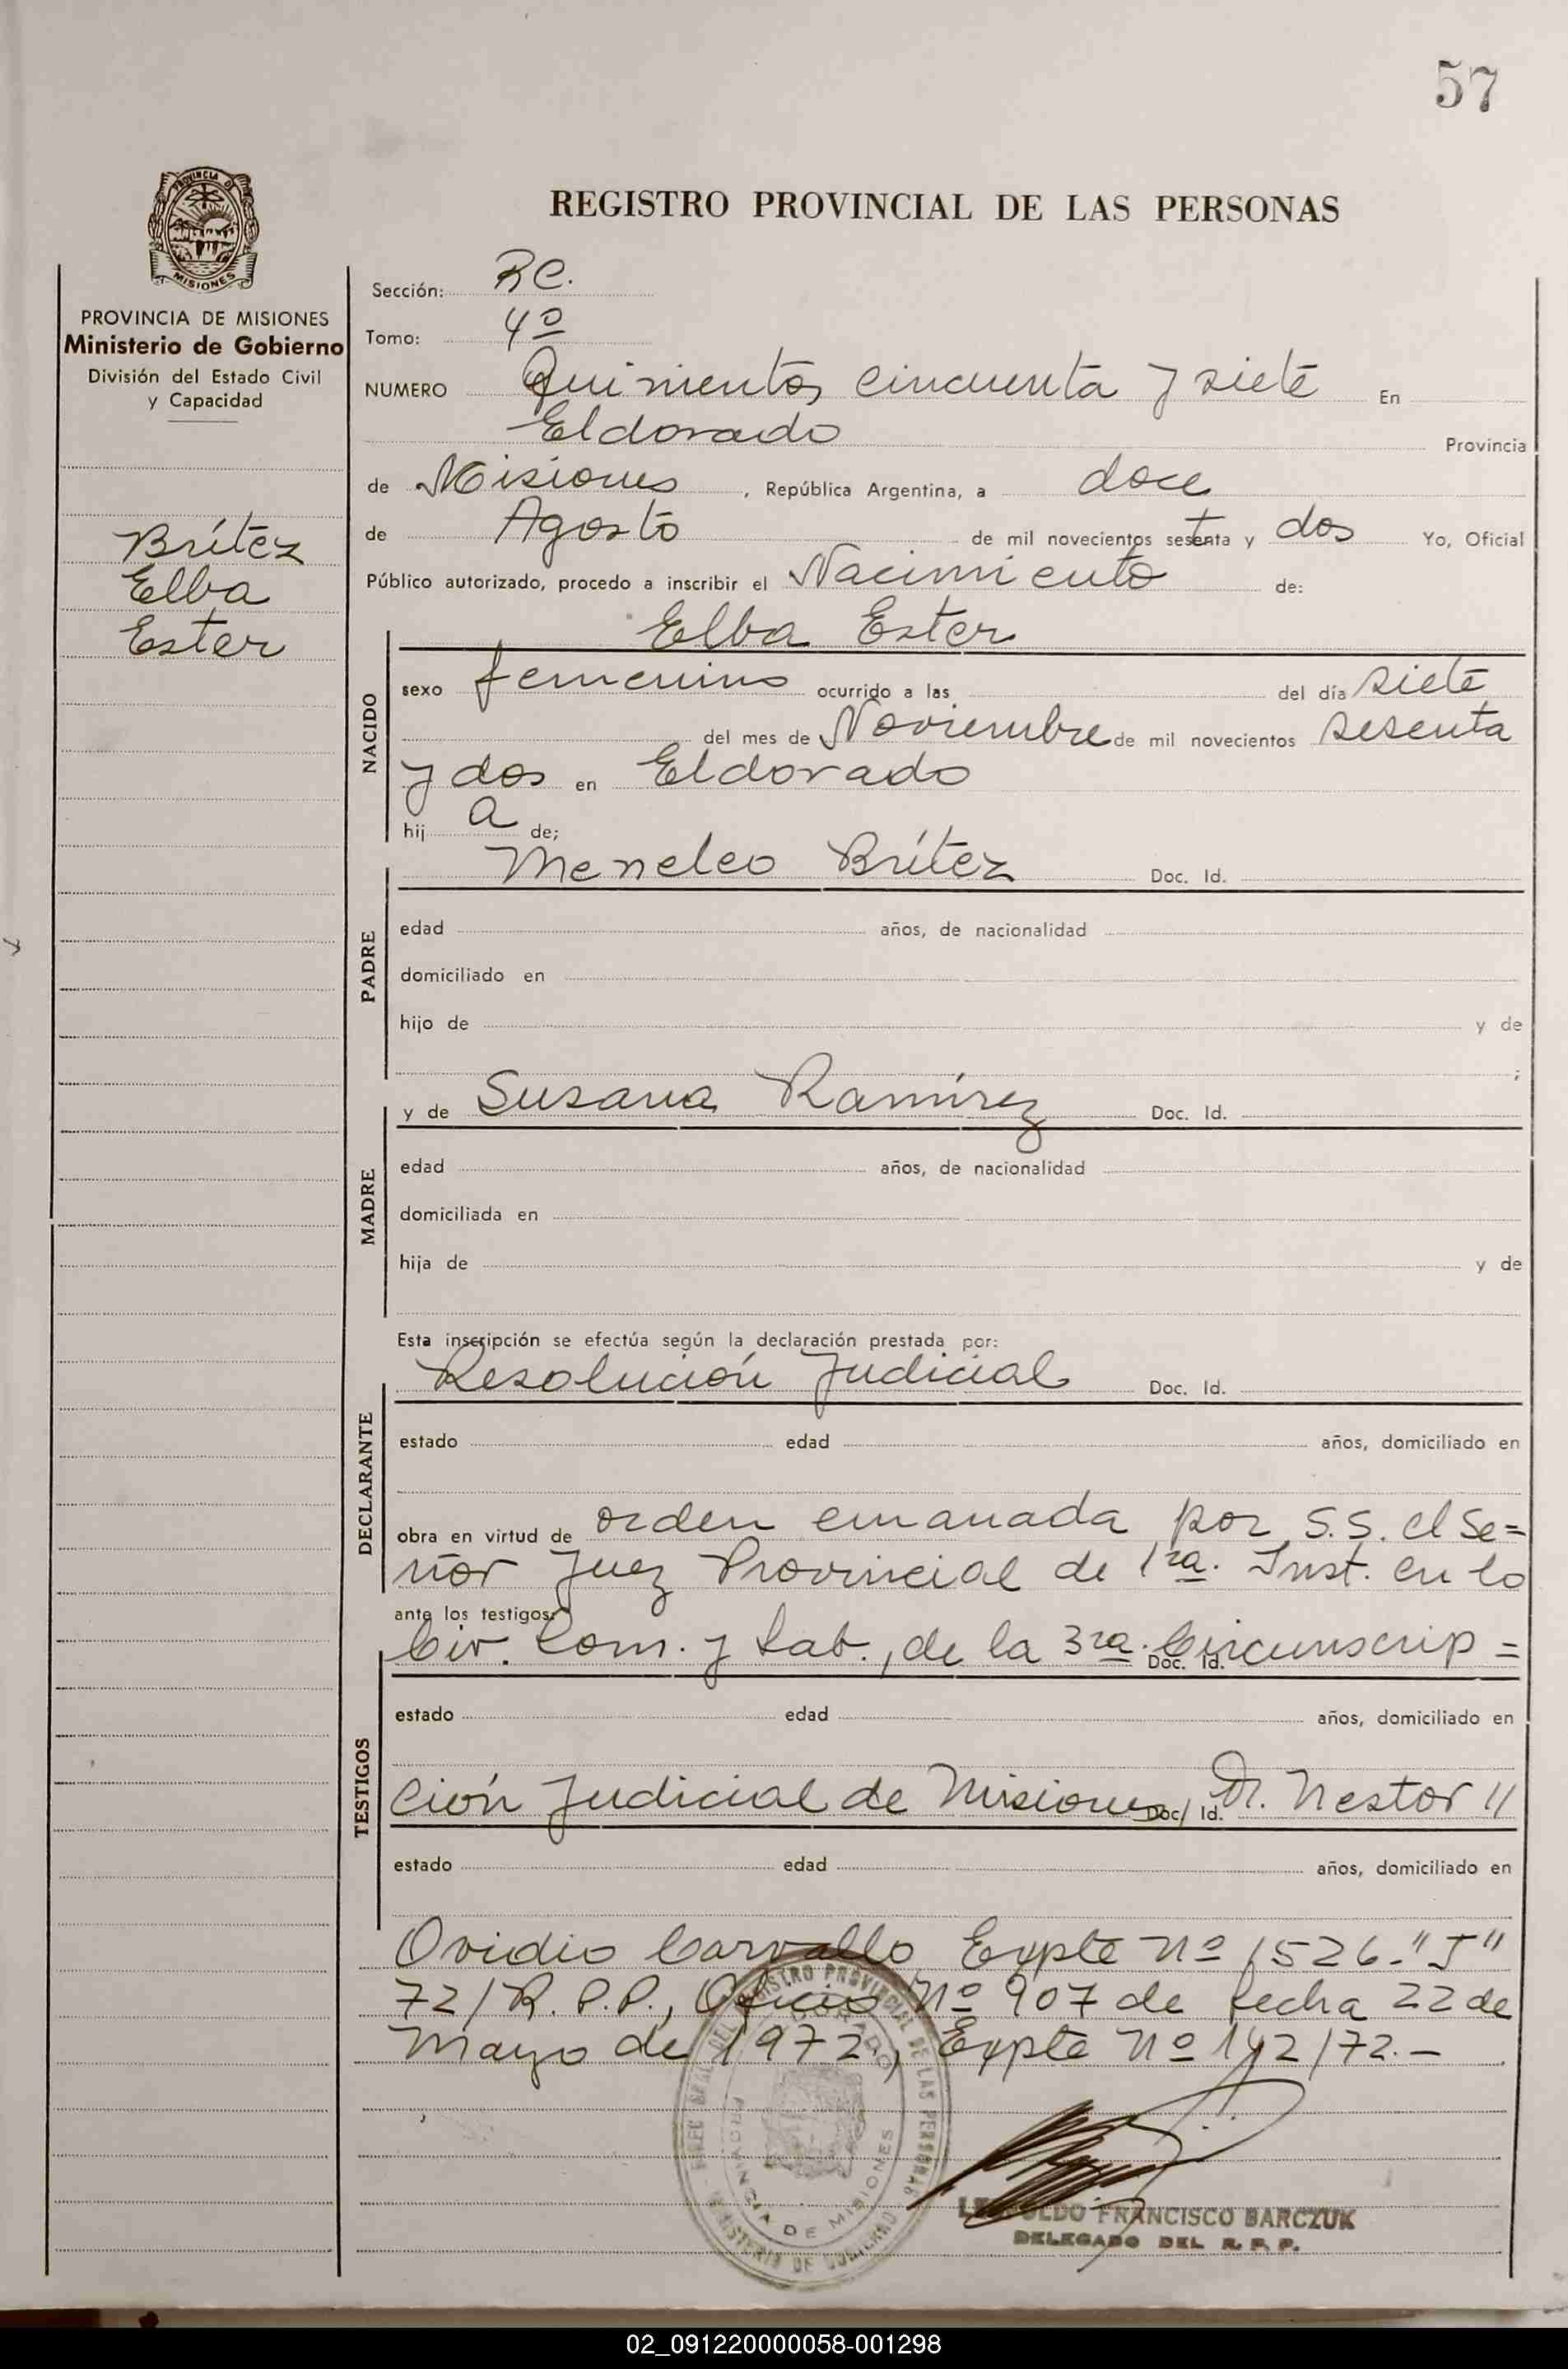 57
PROVINCIA DE
MISIONES
REGISTRO PROVINCIAL DE LAS PERSONAS
PROVINCIA DE MISIONES
Ministerio de Gobierno
División del Estado Civil
y Capacidad
Britez
Elba
Ester
Sección: RC.
Tomo: 4º
NUMERO Quinientos cincuenta y siete En
Eldorado Provincia
de Misiones, República Argentina, a doce
de Agosto de mil novecientos setenta y dos Yo, Oficial
Público autorizado, procedo a inscribir el Nacimiento de:
Elba Ester
NACIDO
sexo femenino ocurrido a las del día siete
del mes de Noviembre de mil novecientos sesenta
y dos en Eldorado
hija de;
PADRE
Meneleo Britez Doc. Id.
edad años, de nacionalidad
domiciliado en
hijo de y de
;
MADRE
y de Susana Ramírez Doc. Id.
edad años, de nacionalidad
domiciliada en
hija de y de
Esta inscripción se efectúa según la declaración prestada por:
DECLARANTE
Resolución Judicial Doc. Id.
estado edad años, domiciliado en
obra en virtud de orden emanada por S.S. el Se=
ñor Juez Provincial de 1ra. Inst. en lo
ante los testigos:
Civ. Com. y Lab., de la 3ra. Circunscrip=
Doc. Id.
TESTIGOS
estado edad años, domiciliado en
ción Judicial de Misiones Dr. Nestor //
Doc. Id.
estado edad años, domiciliado en
Ovidio Carvallo Expte Nº 1526-"J"
72/R.P.P., Oficio Nº 907 de fecha 22 de
Mayo de 1972, Expte Nº 142/72.-
REGISTRO PROVINCIAL DE LAS PERSONAS
PROVINCIA DE MISIONES
MINISTERIO DE GOBIERNO
LEOPOLDO FRANCISCO BARCZUK
DELEGADO DEL R. P. P.
02_091220000058-001298